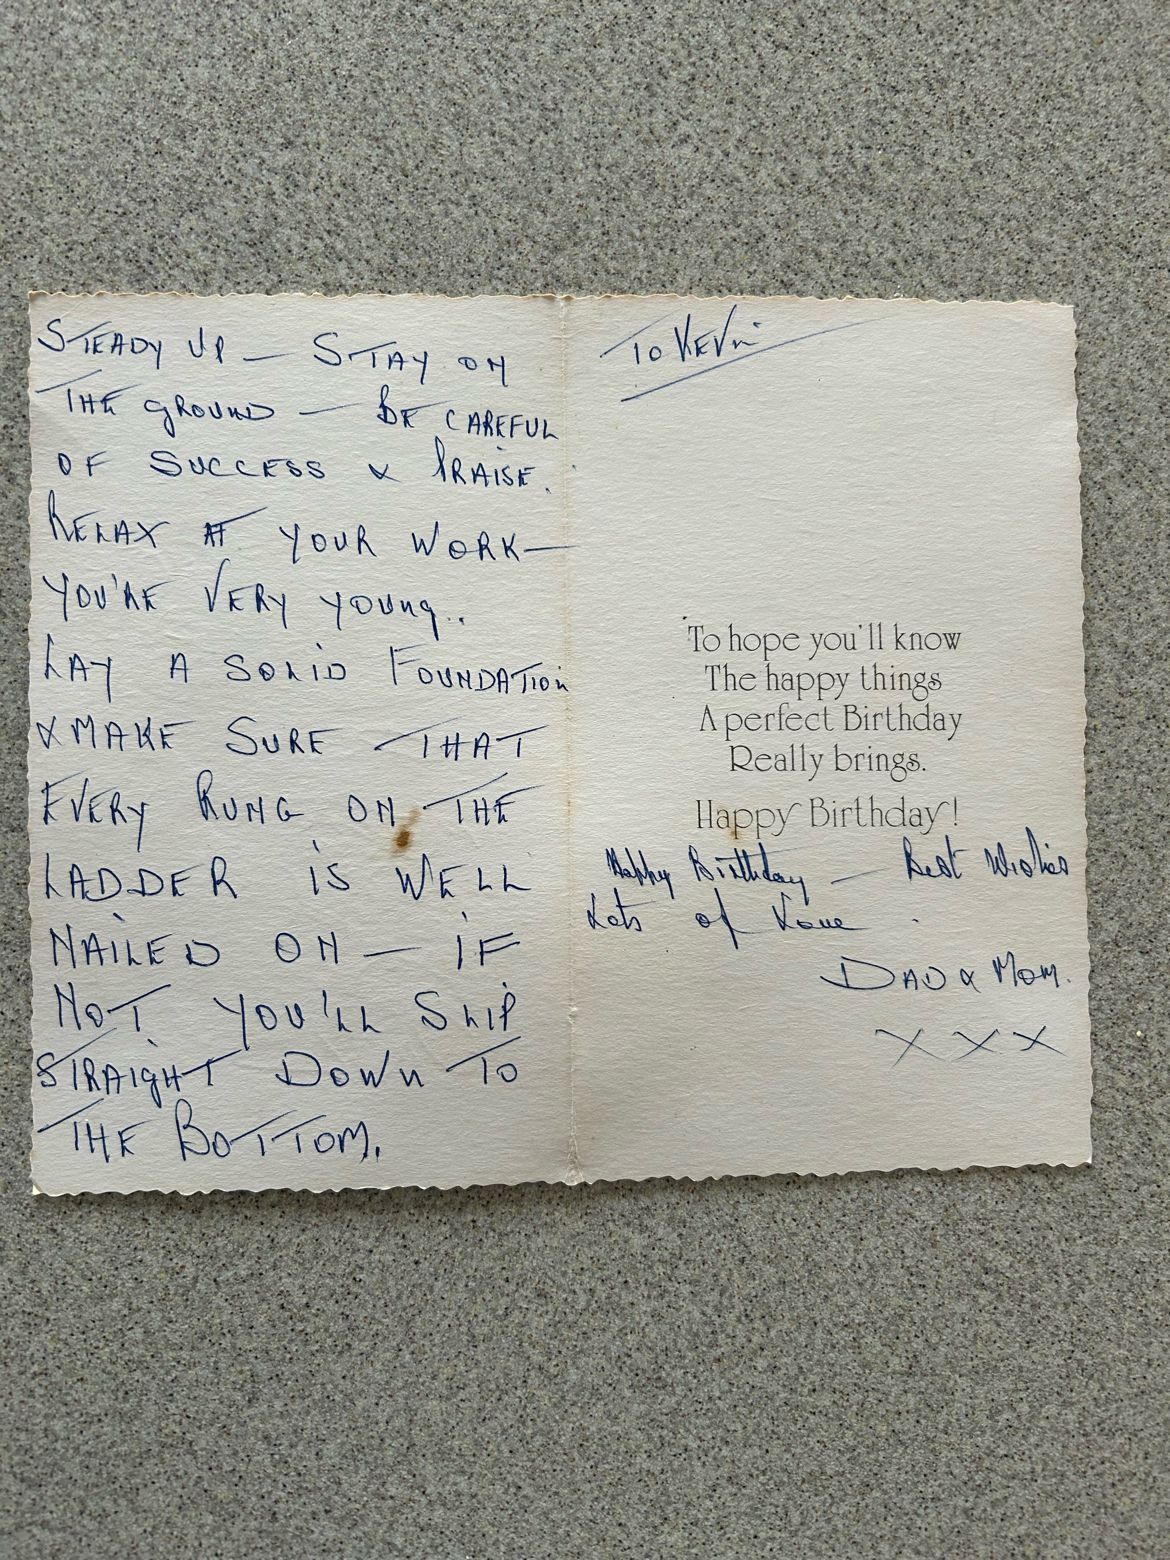 STEADY UP — STAY ON
THE GROUND — BE CAREFUL
OF SUCCESS & PRAISE.
RELAX AT YOUR WORK —
YOU'RE VERY YOUNG..
LAY A SOLID FOUNDATION
& MAKE SURE THAT
EVERY RUNG ON THE
LADDER IS WELL
NAILED ON — IF
NOT YOU'LL SLIP
STRAIGHT DOWN TO
THE BOTTOM.
TO KEVIN
To hope you'll know
The happy things
A perfect Birthday
Really brings.
Happy Birthday!
Happy Birthday — Best Wishes
Lots of Love.
DAD & MOM.
X X X